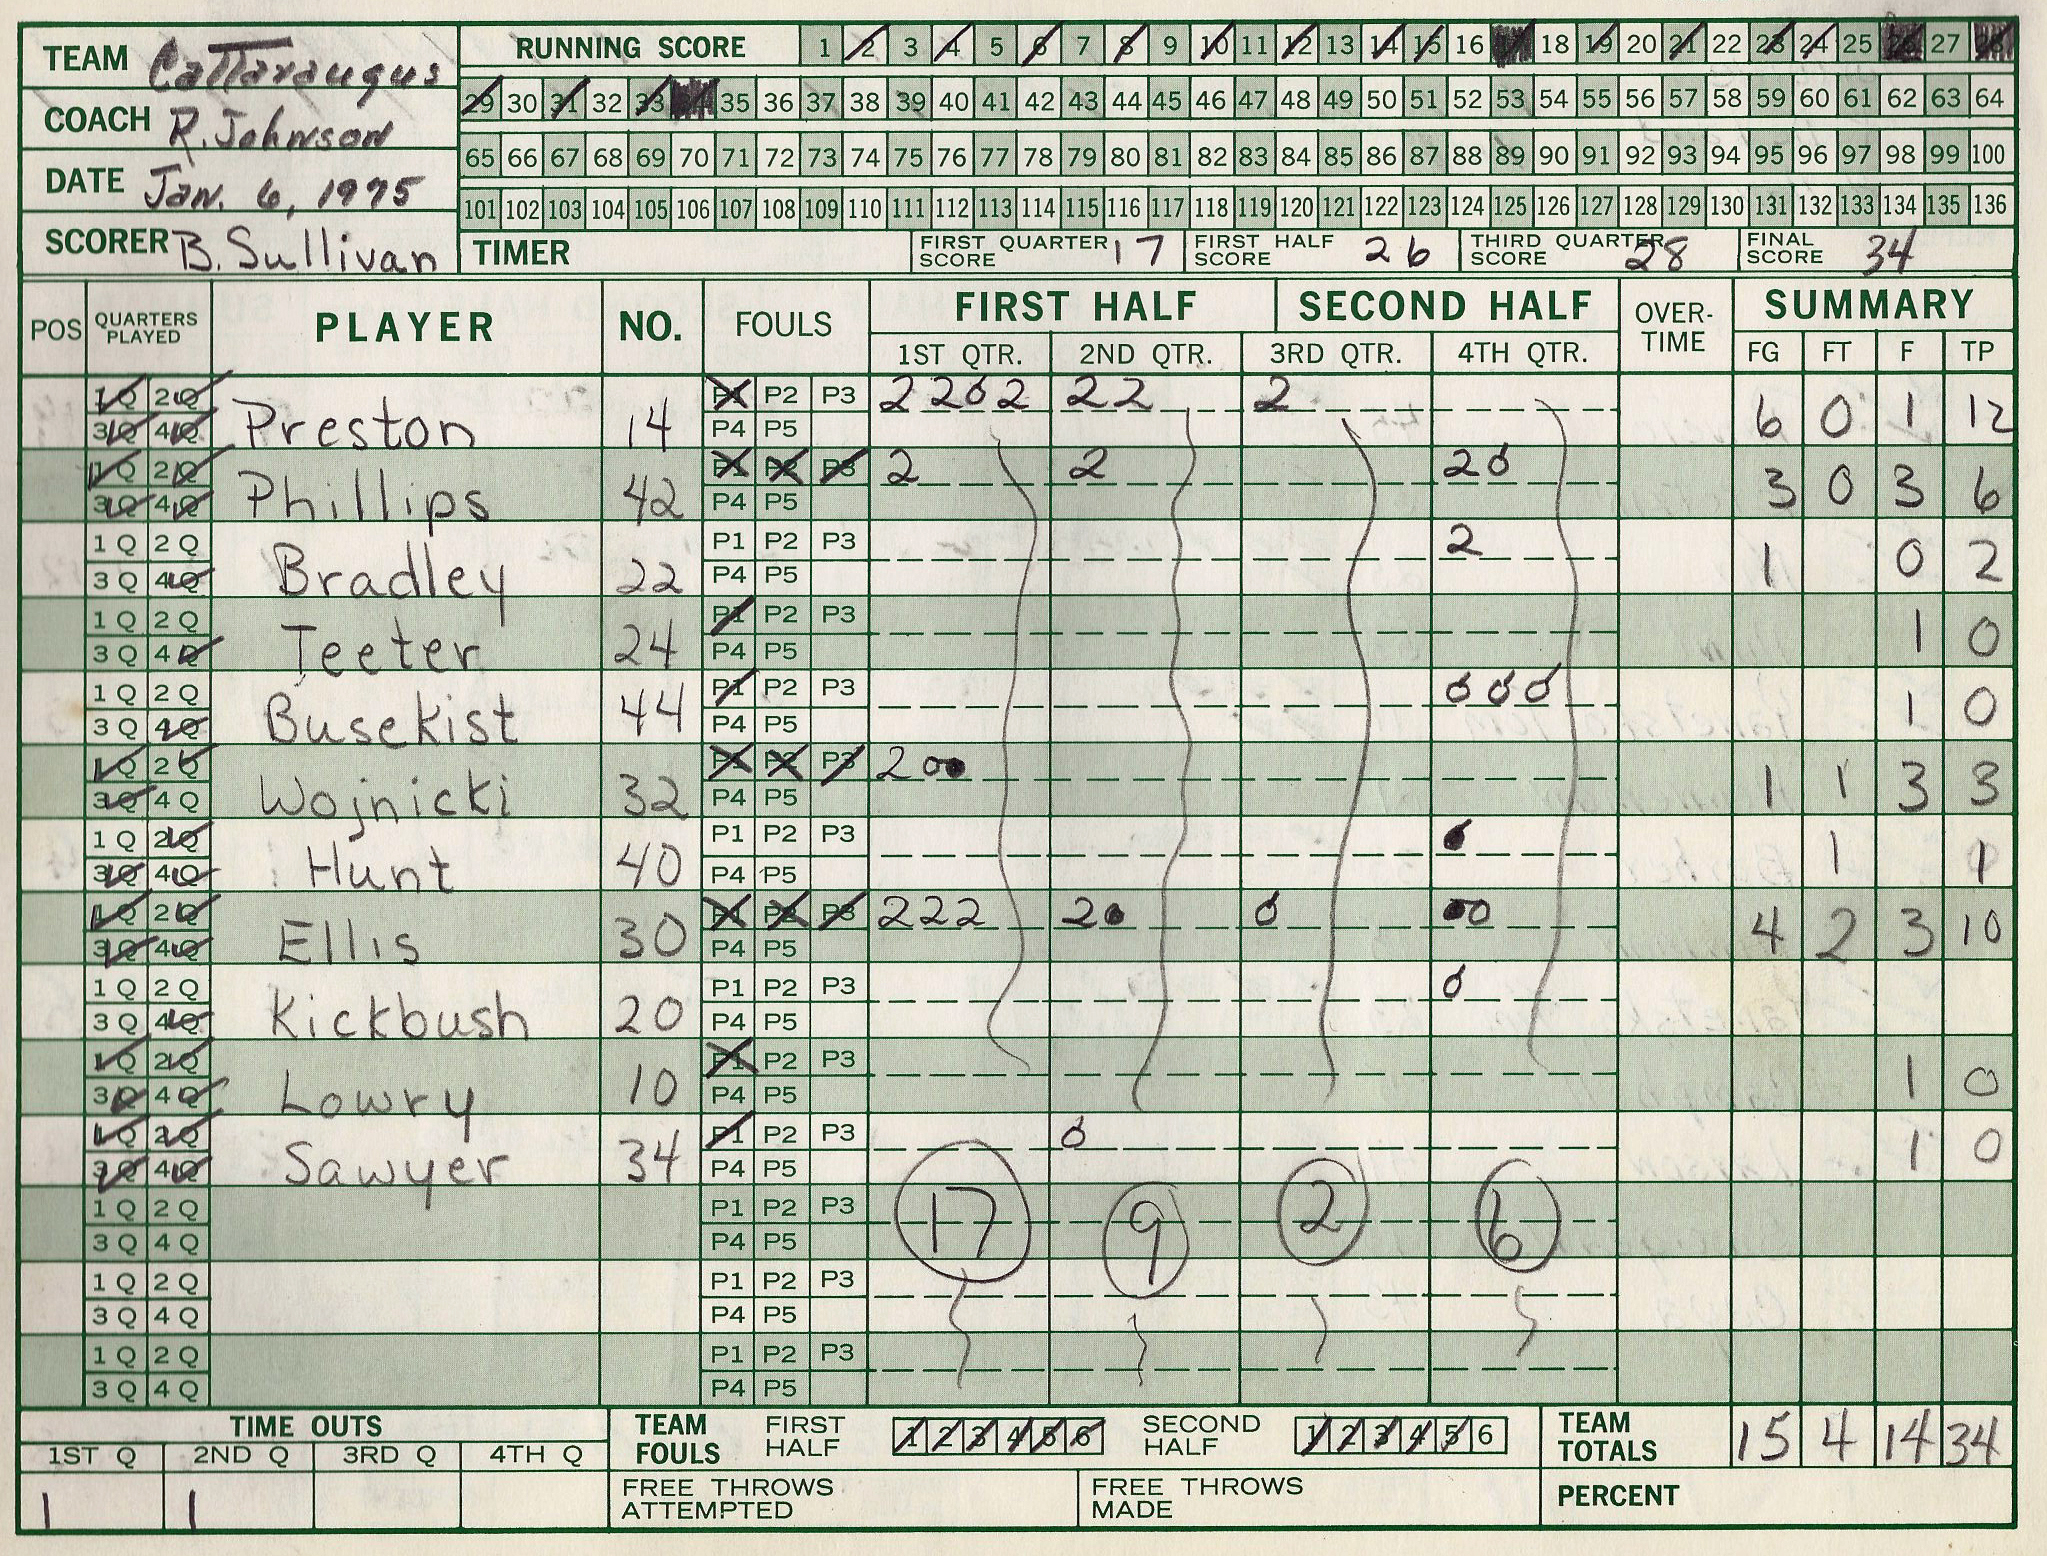 TEAM Cattaraugus
COACH R. Johnson
DATE Jan. 6, 1975
SCORER B. Sullivan
RUNNING SCORE 1 2 3 4 5 6 7 8 9 10 11 12 13 14 15 16 17 18 19 20 21 22 23 24 25 26 27 28
29 30 31 32 33 34 35 36 37 38 39 40 41 42 43 44 45 46 47 48 49 50 51 52 53 54 55 56 57 58 59 60 61 62 63 64
65 66 67 68 69 70 71 72 73 74 75 76 77 78 79 80 81 82 83 84 85 86 87 88 89 90 91 92 93 94 95 96 97 98 99 100
101 102 103 104 105 106 107 108 109 110 111 112 113 114 115 116 117 118 119 120 121 122 123 124 125 126 127 128 129 130 131 132 133 134 135 136
TIMER FIRST QUARTER SCORE 17 FIRST HALF SCORE 26 THIRD QUARTER SCORE 28 FINAL SCORE 34
POS QUARTERS PLAYED PLAYER NO. FOULS FIRST HALF SECOND HALF OVER-TIME SUMMARY
1ST QTR. 2ND QTR. 3RD QTR. 4TH QTR. FG FT F TP
1Q 2Q P1 P2 P3 2 2 0 2 2 2 2
3Q 4Q Preston 14 P4 P5 6 0 1 12
1Q 2Q P1 P2 P3 2 2 2 0
3Q 4Q Phillips 42 P4 P5 3 0 3 6
1Q 2Q P1 P2 P3 2
3Q 4Q Bradley 22 P4 P5 1 0 2
1Q 2Q P1 P2 P3
3Q 4Q Teeter 24 P4 P5 1 0
1Q 2Q P1 P2 P3 0 0 0
3Q 4Q Busekist 44 P4 P5 1 0
1Q 2Q P1 P2 P3 2 0 0
3Q 4Q Wojnicki 32 P4 P5 1 1 3 3
1Q 2Q P1 P2 P3 0
3Q 4Q Hunt 40 P4 P5 1 1
1Q 2Q P1 P2 P3 2 2 2 2 0 0 0 0
3Q 4Q Ellis 30 P4 P5 4 2 3 10
1Q 2Q P1 P2 P3 0
3Q 4Q Kickbush 20 P4 P5
1Q 2Q P1 P2 P3
3Q 4Q Lowry 10 P4 P5 1 0
1Q 2Q P1 P2 P3 0
3Q 4Q Sawyer 34 P4 P5 1 0
1Q 2Q P1 P2 P3 17 9 2 6
3Q 4Q P4 P5
1Q 2Q P1 P2 P3
3Q 4Q P4 P5
1Q 2Q P1 P2 P3
3Q 4Q P4 P5
TIME OUTS
1ST Q 2ND Q 3RD Q 4TH Q
1 1
TEAM FOULS FIRST HALF 1 2 3 4 5 6 SECOND HALF 1 2 3 4 5 6 TEAM TOTALS 15 4 14 34
FREE THROWS ATTEMPTED FREE THROWS MADE PERCENT